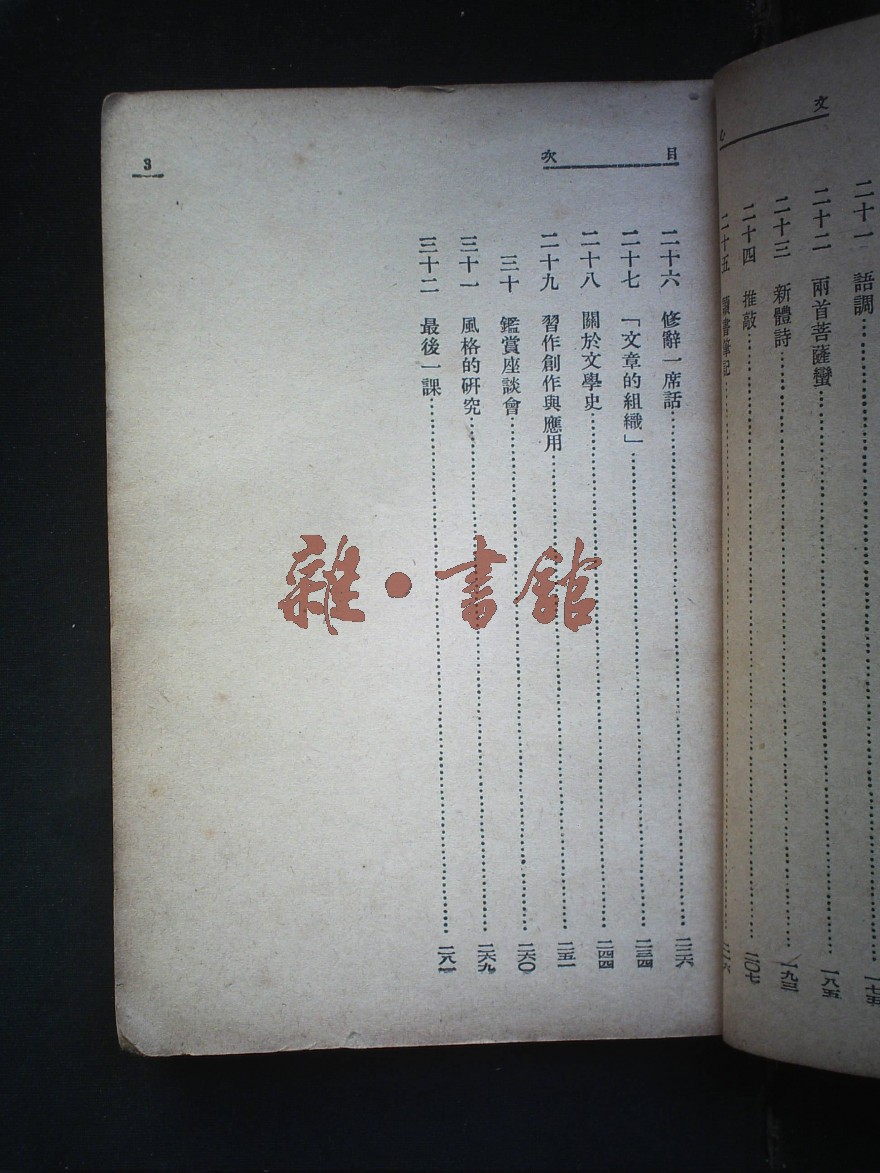 文心
二十一 語調……一七五
二十二 兩首菩薩蠻……一八五
二十三 新體詩……一九三
二十四 推敲……二〇七
二十五 讀書筆記……二一六
目次
3
二十六 修辭一席話……二二六
二十七 「文章的組織」……二三四
二十八 關於文學史……二四四
二十九 習作創作與應用……二五一
三十 鑑賞座談會……二六〇
三十一 風格的研究……二六九
三十二 最後一課……二八一
雜·書館